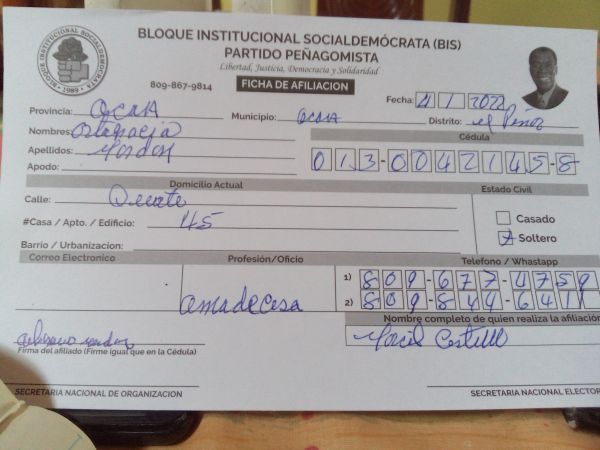 BLOQUE INSTITUCIONAL SOCIALDEMÓCRATA (BIS)
PARTIDO PEÑAGOMISTA
Libertad, Justicia, Democracia y Solidaridad
BLOQUE INSTITUCIONAL SOCIALDEMÓCRATA
1989
809-867-9814
FICHA DE AFILIACION
Fecha: 4/1/2022
Provincia: OCOA Municipio: OCOA Distrito: el Pinar
Nombres: Altagracia
Cédula
Apellidos:
013-0042145-8
Apodo:
Domicilio Actual
Estado Civil
Calle: Duarte
#Casa / Apto. / Edificio: 45
Casado
Soltero
Barrio / Urbanizacion:
Correo Electronico
Profesión/Oficio
Telefono / Whastapp
1) 809-677-4759
2) 809-844-6411
amadecasa
Nombre completo de quien realiza la afiliación
Castillo
Firma del afiliado (Firme igual que en la Cédula)
SECRETARIA NACIONAL DE ORGANIZACION
SECRETARIA NACIONAL ELECTOR